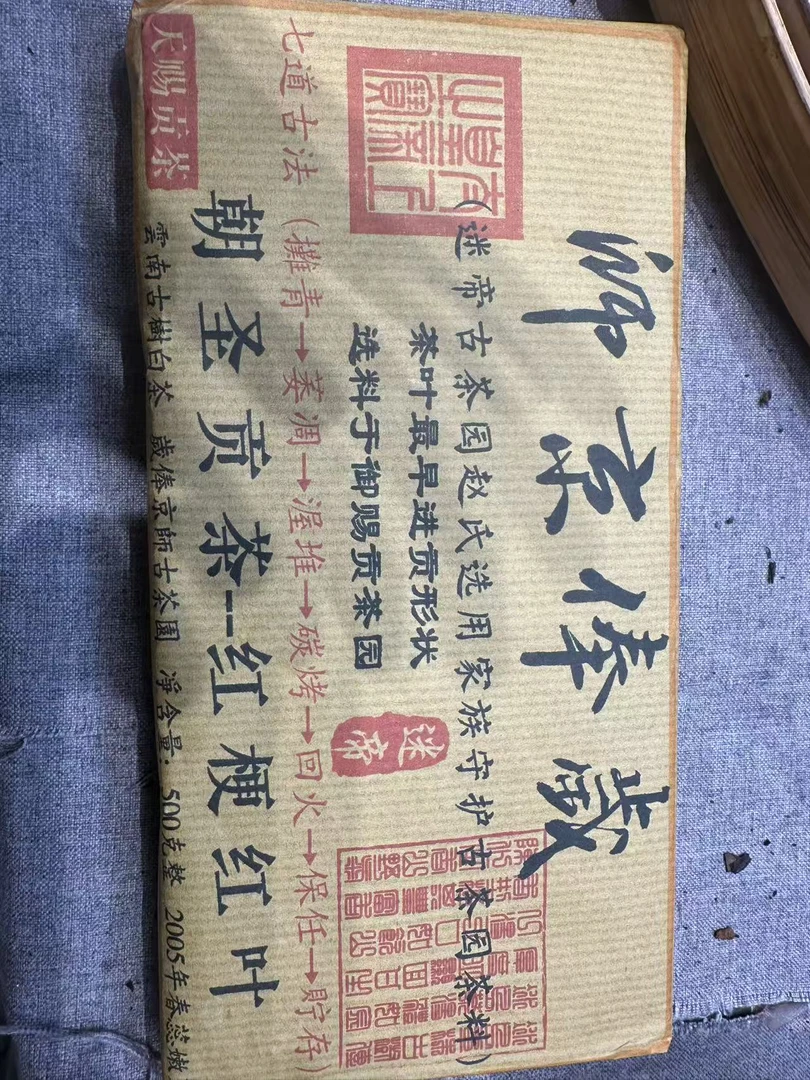 师京俸歲
(迷帝古茶园赵氏选用家族守护古茶园茶料)
茶叶最早进贡形状
选料于御赐贡茶园
迷帝
七道古法(攤青→萎凋→渥堆→碳烤→回火→保任→貯存)
朝圣贡茶--红梗红叶
天赐贡茶
雲南古樹白茶 歲俸京師古茶園 淨含量:500克整 2005年春蕊嫩